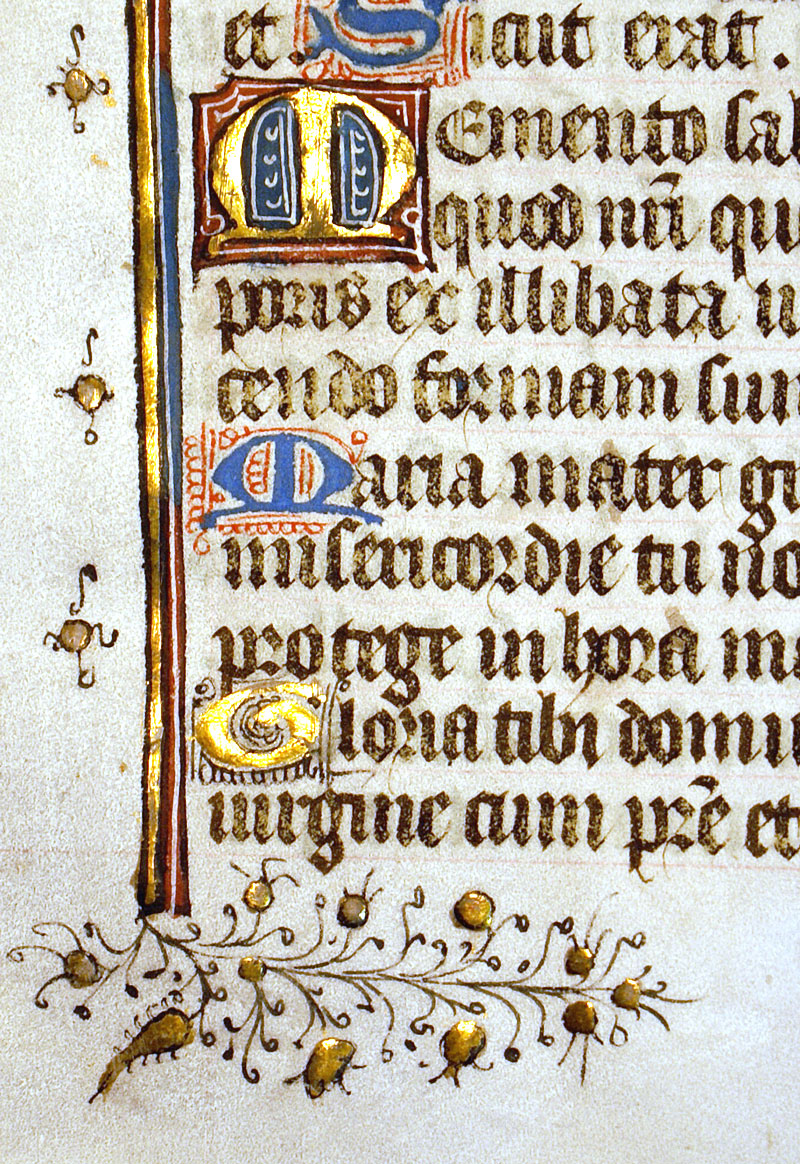 et. Sicut erat.
Memento sal
quod nrī qu
poris ex illibata u
cendo formam sum
Maria mater gr
misericordie tu no
protege in hora mo
Gloria tibi domi
uirgine cum pr̄e et